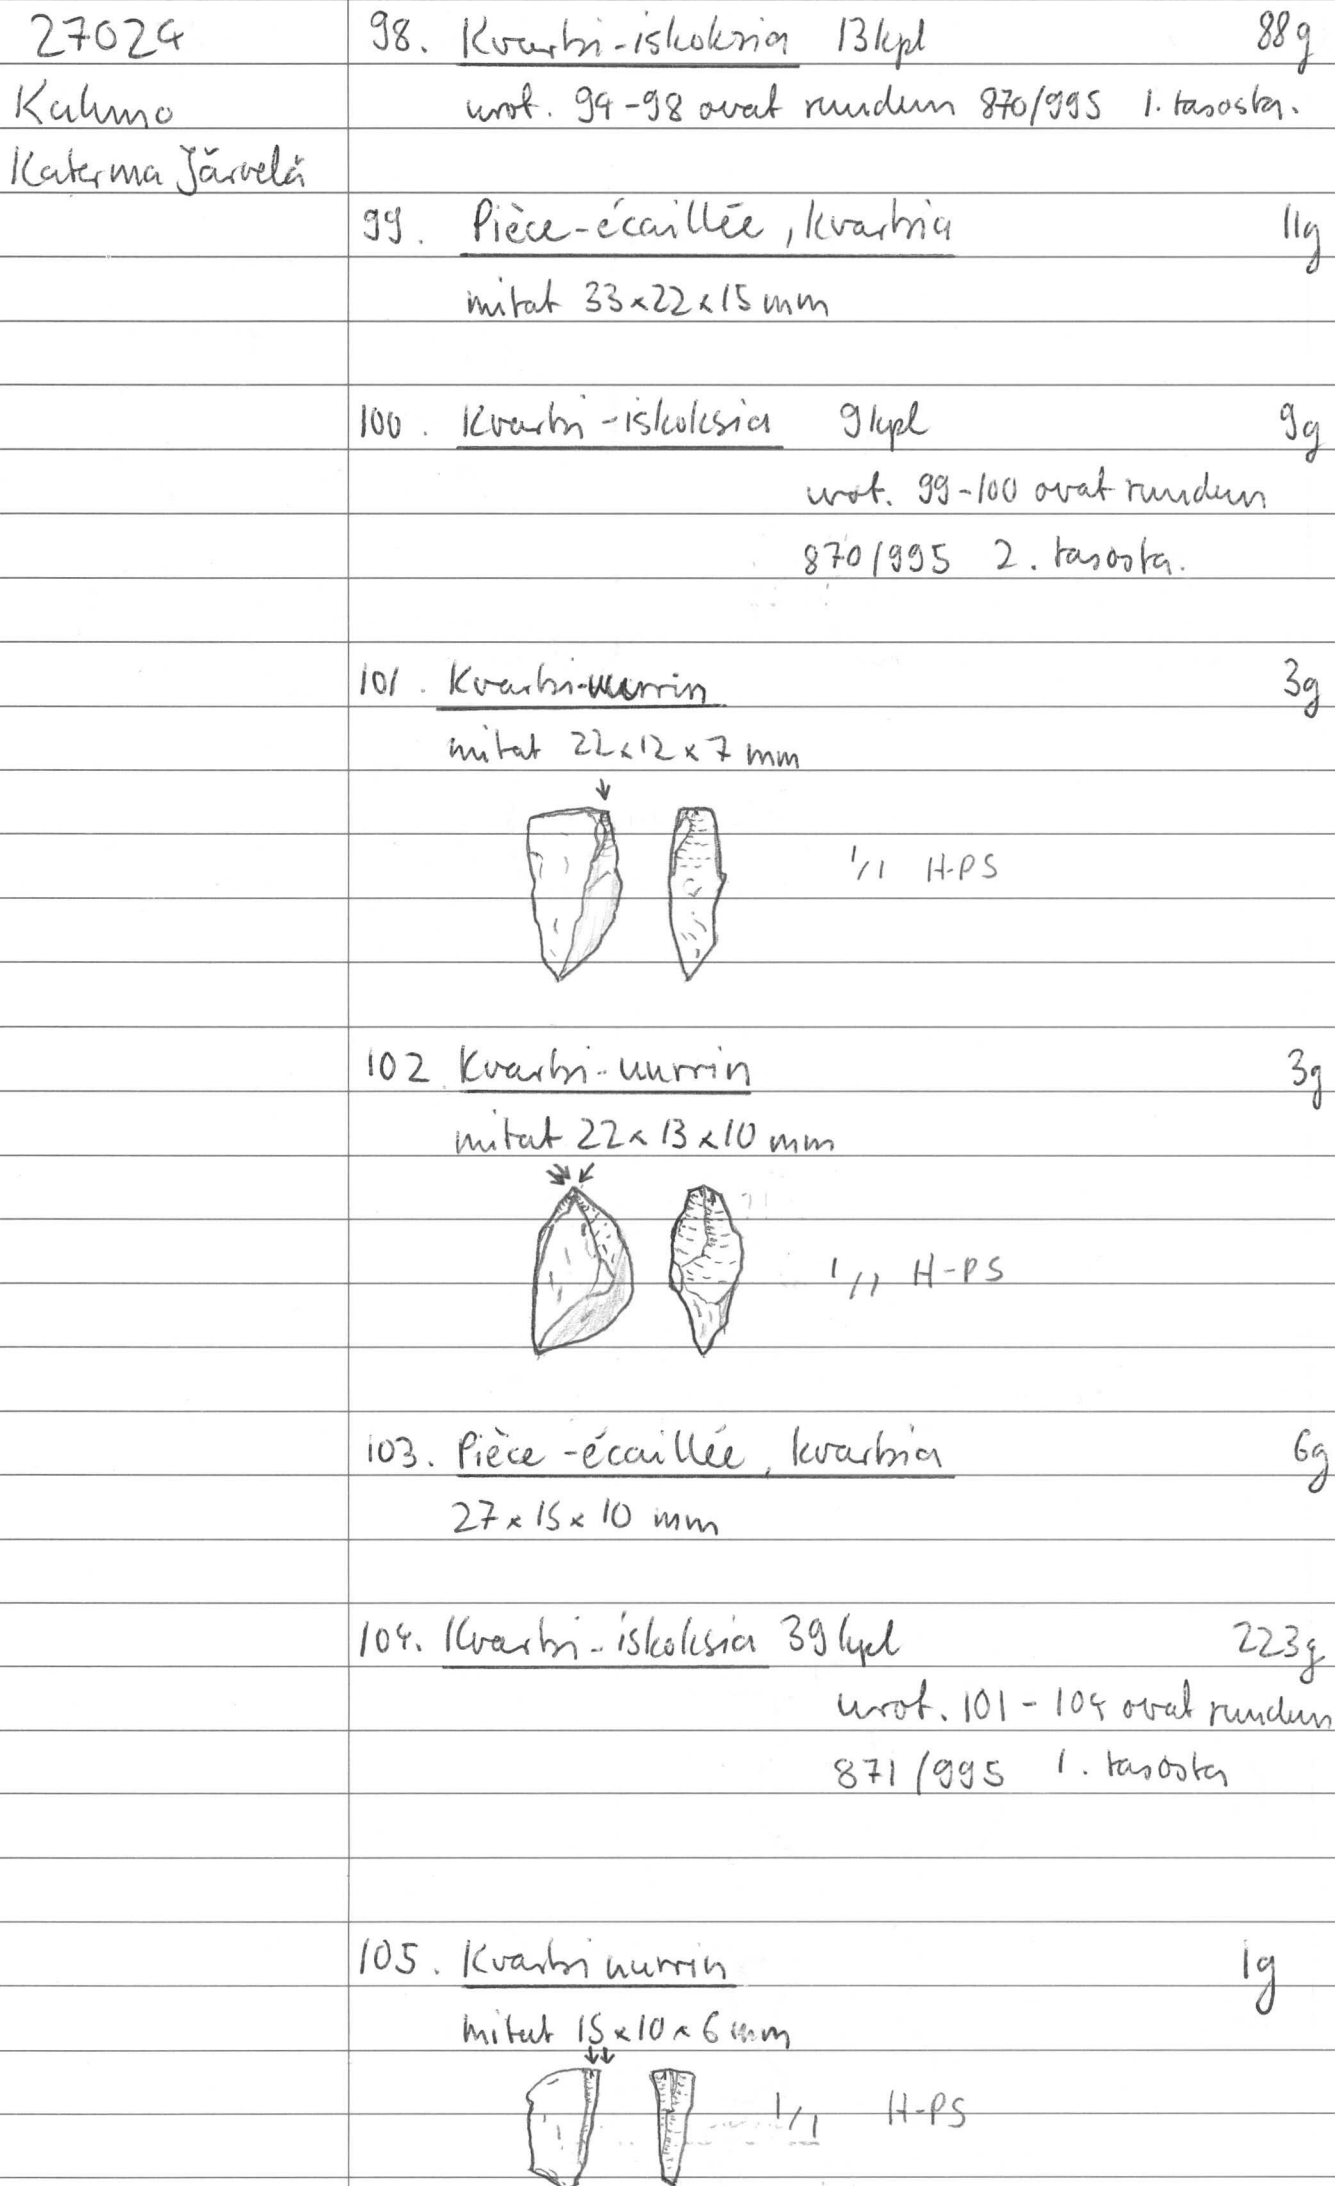 27024
Kuhmo
Katerma Järvelä
98. Kvartsi-iskoksia 13kpl 88g
nrot. 94-98 ovat ruudun 870/995 1. tasosta.
99. Pièce-écaillée, kvartsia 11g
mitat 33x22x15mm
100. Kvartsi-iskoksia 9kpl 9g
nrot. 99-100 ovat ruudun
870/995 2. tasosta.
101. Kvartsi-uurrin 3g
mitat 22x12x7mm
1/1 H-PS
102 Kvartsi-uurrin 3g
mitat 22x13x10mm
1/1 H-PS
103. Pièce-écaillée, kvartsia 6g
27x15x10 mm
104. Kvartsi-iskoksia 39kpl 223g
nrot. 101-104 ovat ruudun
871/995 1. tasosta
105. Kvartsi uurrin 1g
mitat 15x10x6mm
1/1 H-PS